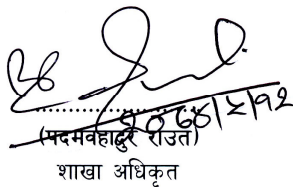 २०७४/५/१२
(पदमवहादुर राउत)
शाखा अधिकृत